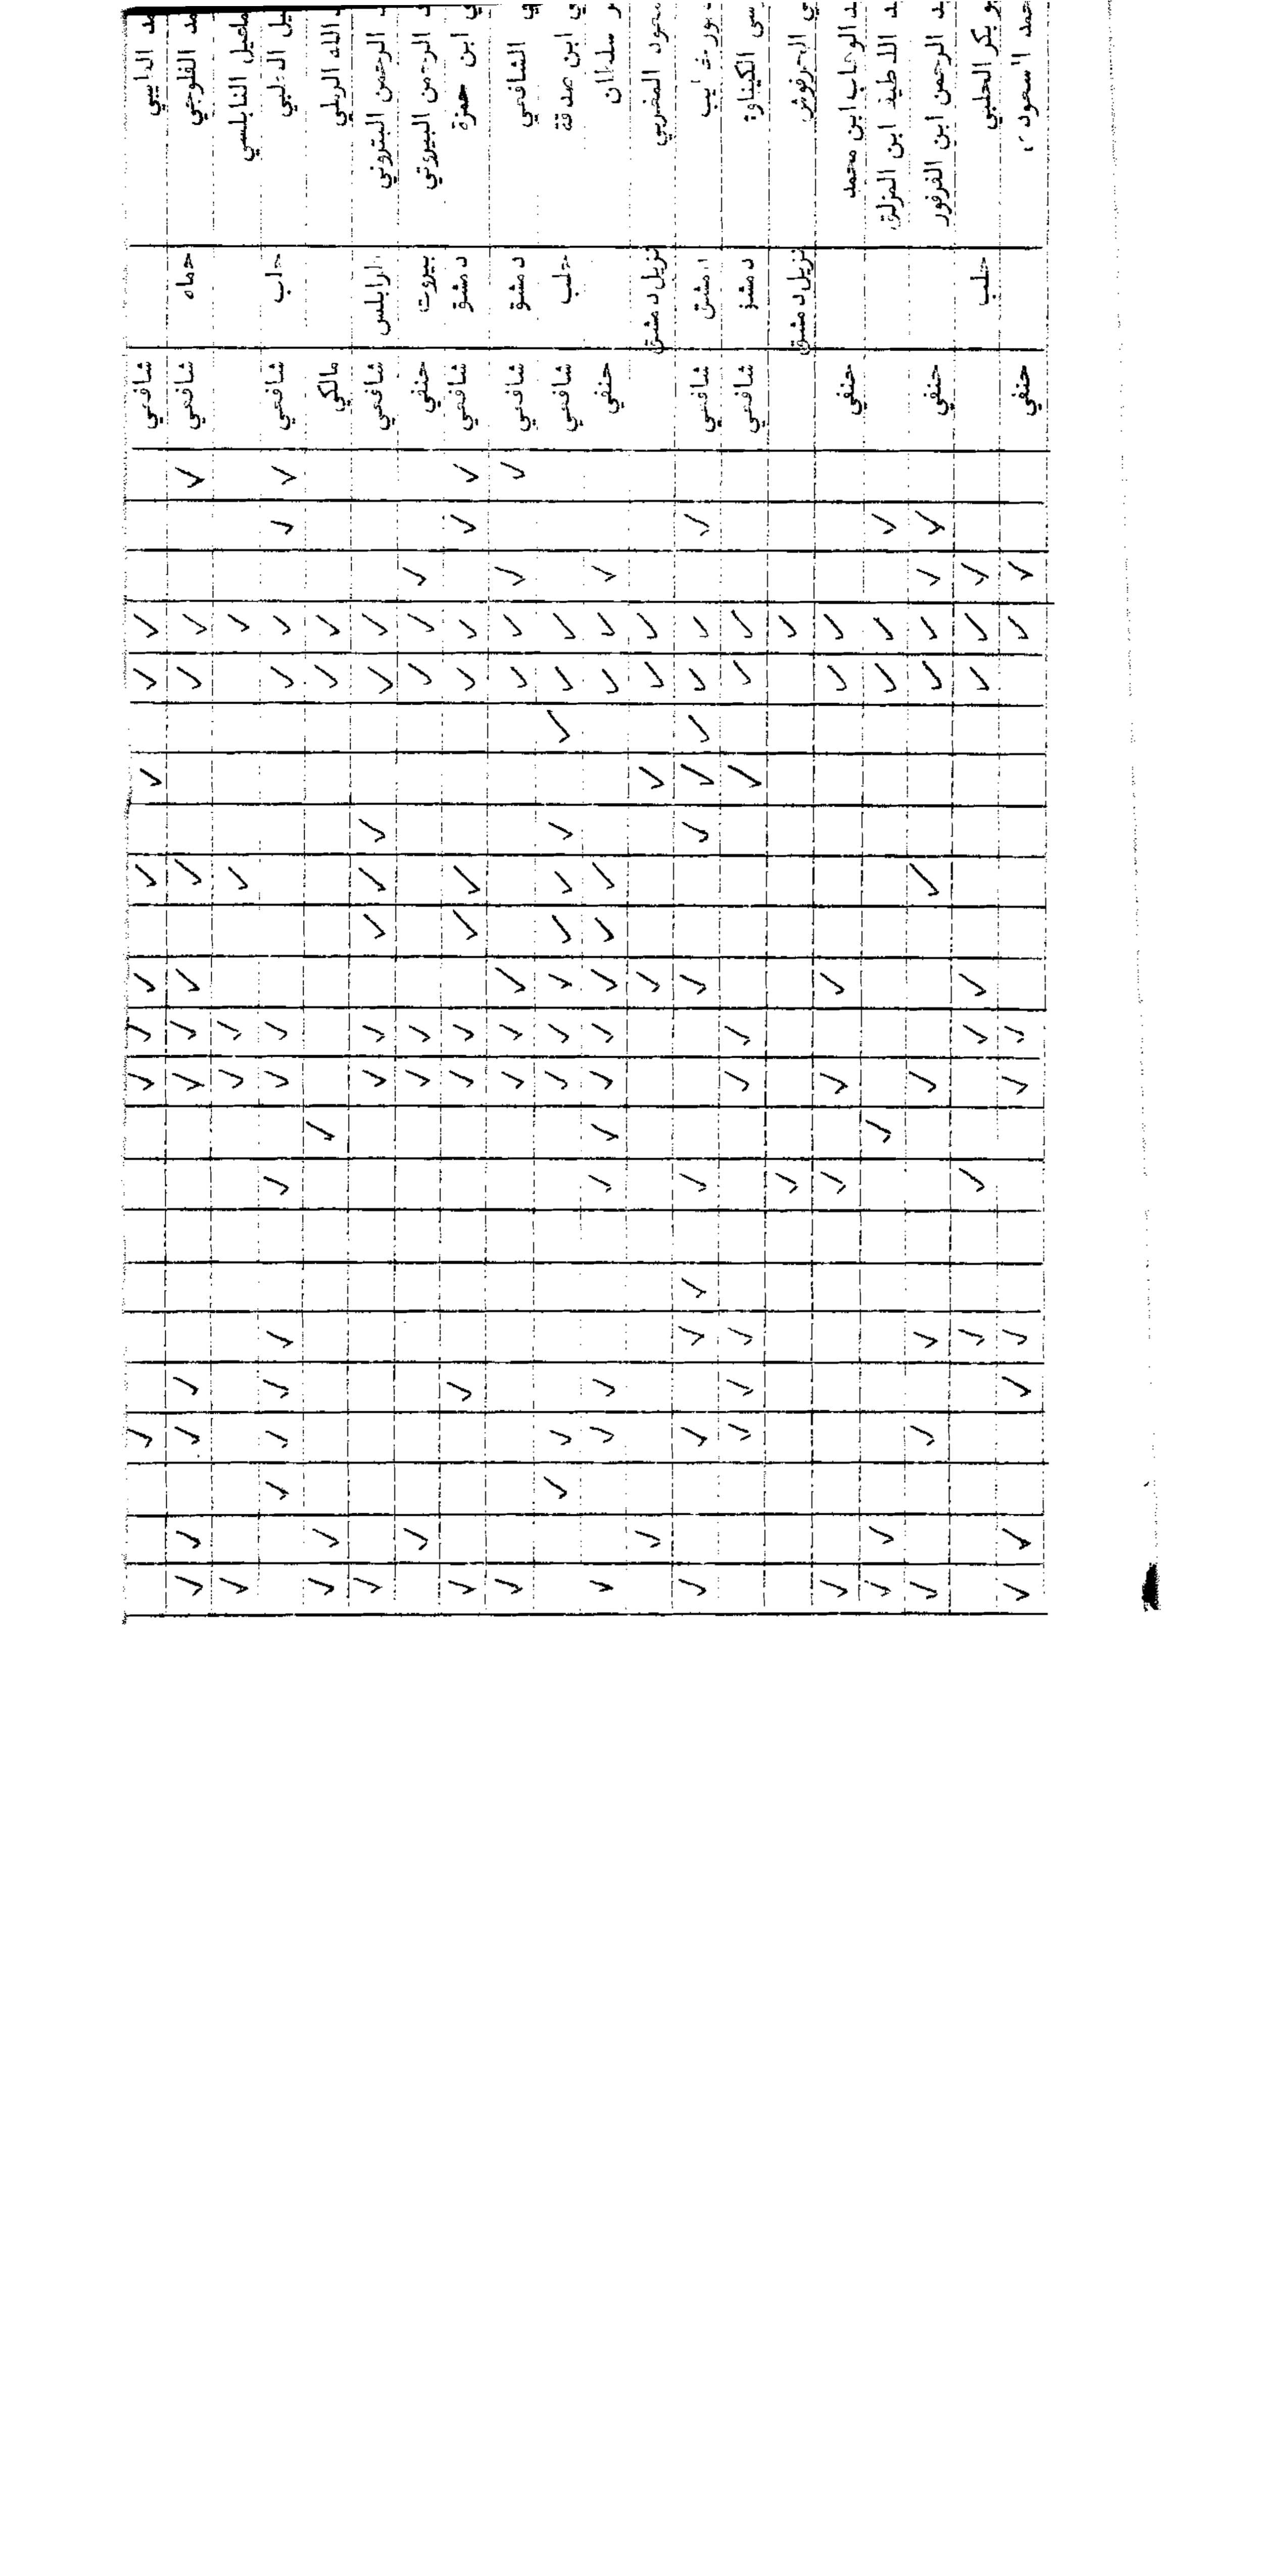 شافعي
الفلوجي حماه شافعي
النابلسي
حلب شافعي
الله الرملي مالكي
الرحمن البتروني طرابلس شافعي
الرحمن البيروتي بيروت حنفي
ابن حمزة دمشق شافعي
الشافعي دمشق شافعي
ابن صدقة حلب شافعي
سلطان حنفي
المغربي نزيل دمشق
دمشق شافعي
الكيناوي دمشق شافعي
الحرفوشي نزيل دمشق
الوهاب ابن محمد حنفي
اللطيف ابن المزلق
الرحمن ابن الفرفور حنفي
بكر الحلبي حلب
السعودي حنفي